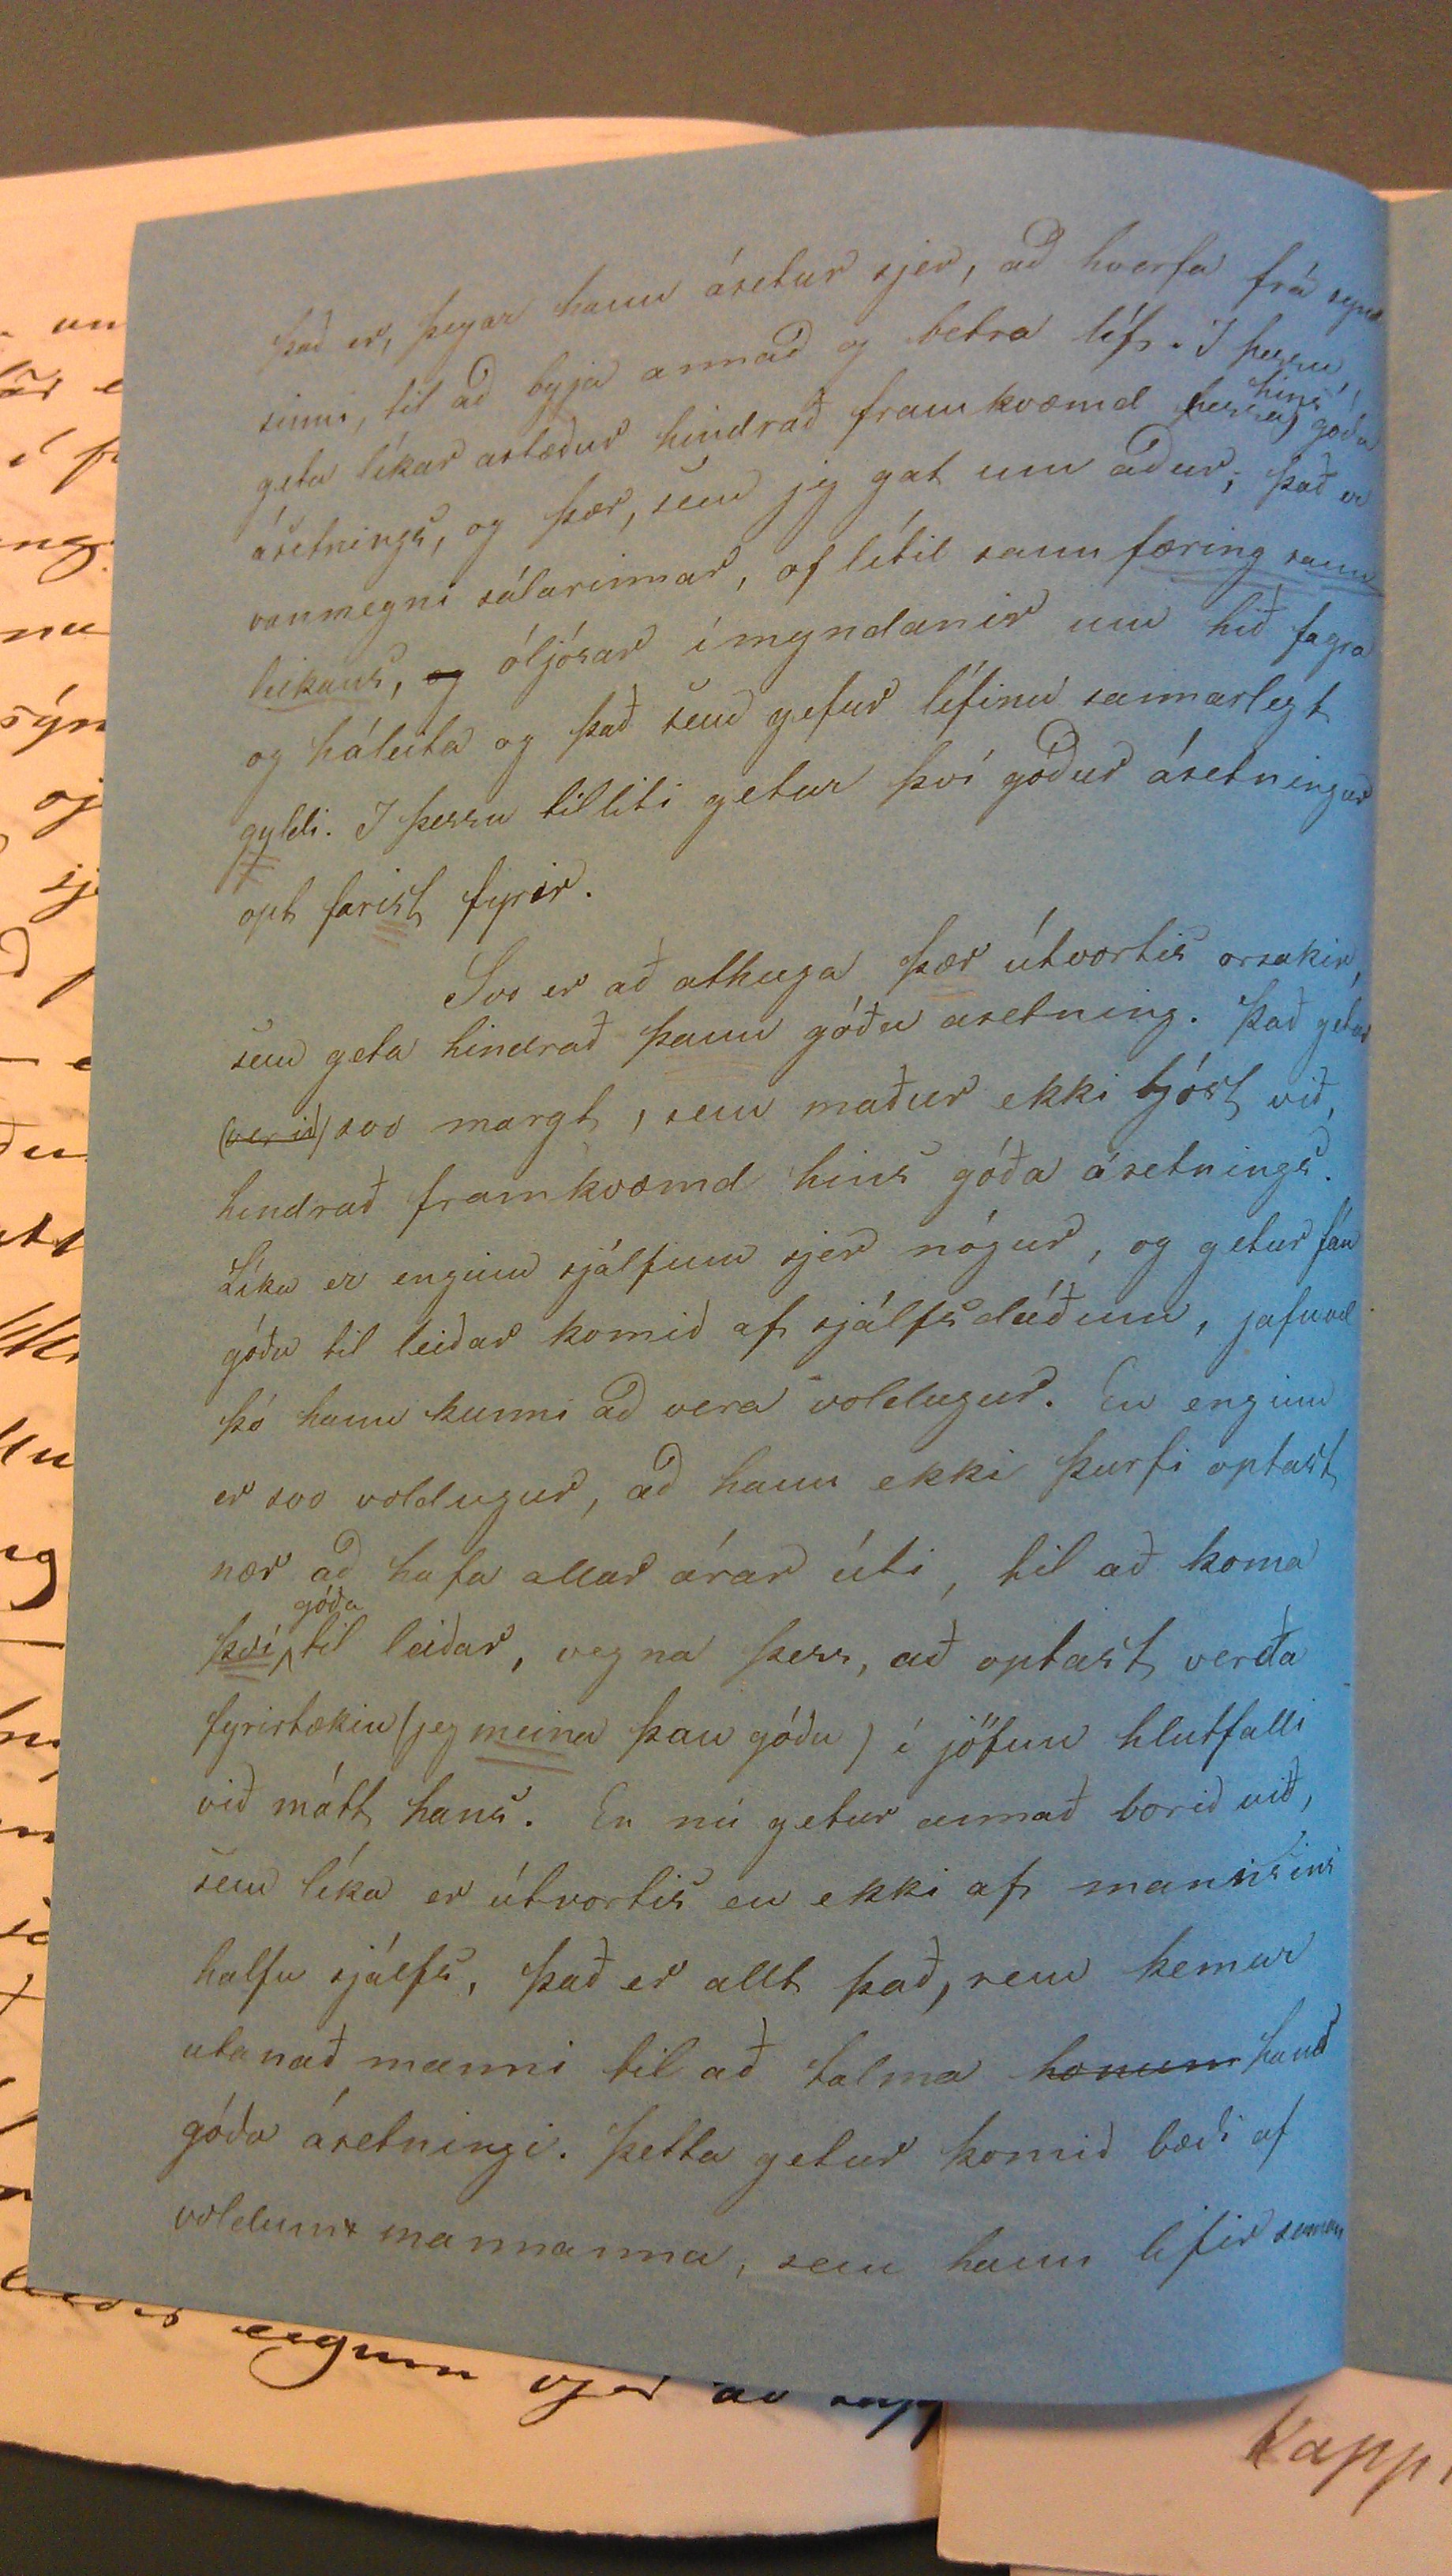 það er, þegar hann ásetur sjer, að hverfa frá synd
sinni, til að byja annað og betra líf. I þessu
geta líkar astæður hindrað framkvæmd (þessa) hins góða
ásetnings, og þær, sem jeg gat um aður; það er
vanmegni sálarinnar, of lítil sannfæring sann
leikans, og óljósar ímyndanir um hið fagra
og háleita og það sem gefur lífinu sannarlegt
gyldi. I þessu tilliti getur því góður ásetningur
opt farist fyrir.
Svo er að athuga þær útvortis orsakir,
sem geta hindrað þann góða asetning. Það getur
(verið) svo margt, sem maður ekki bjóst við,
hindrað framkvæmd hins góða ásetnings.
Líka er enginn sjálfum sjer nógur, og getur fáu
góðu til leiðar komið af sjálfsdáðum, jafnvel
þó hann kunni að vera voldugur. En enginn
er svo voldugur, að hann ekki þurfi optast
nær að hafa allar árar úti, til að koma
því góða til leiðar, vegna þess, að optast verða
fyrirtækin (jeg meina þau góðu) í jöfnu hlutfalli
við mátt hans. En nú getur annað borið við,
sem líka er útvortis en ekki af mannsins
halfu sjálfs, það er allt það, sem kemur
utanað manni til að talma honum hans
góða ásetningi. Þetta getur komið bæði af
voldum mannanna, sem hann lifir saman
eigum
Kapp